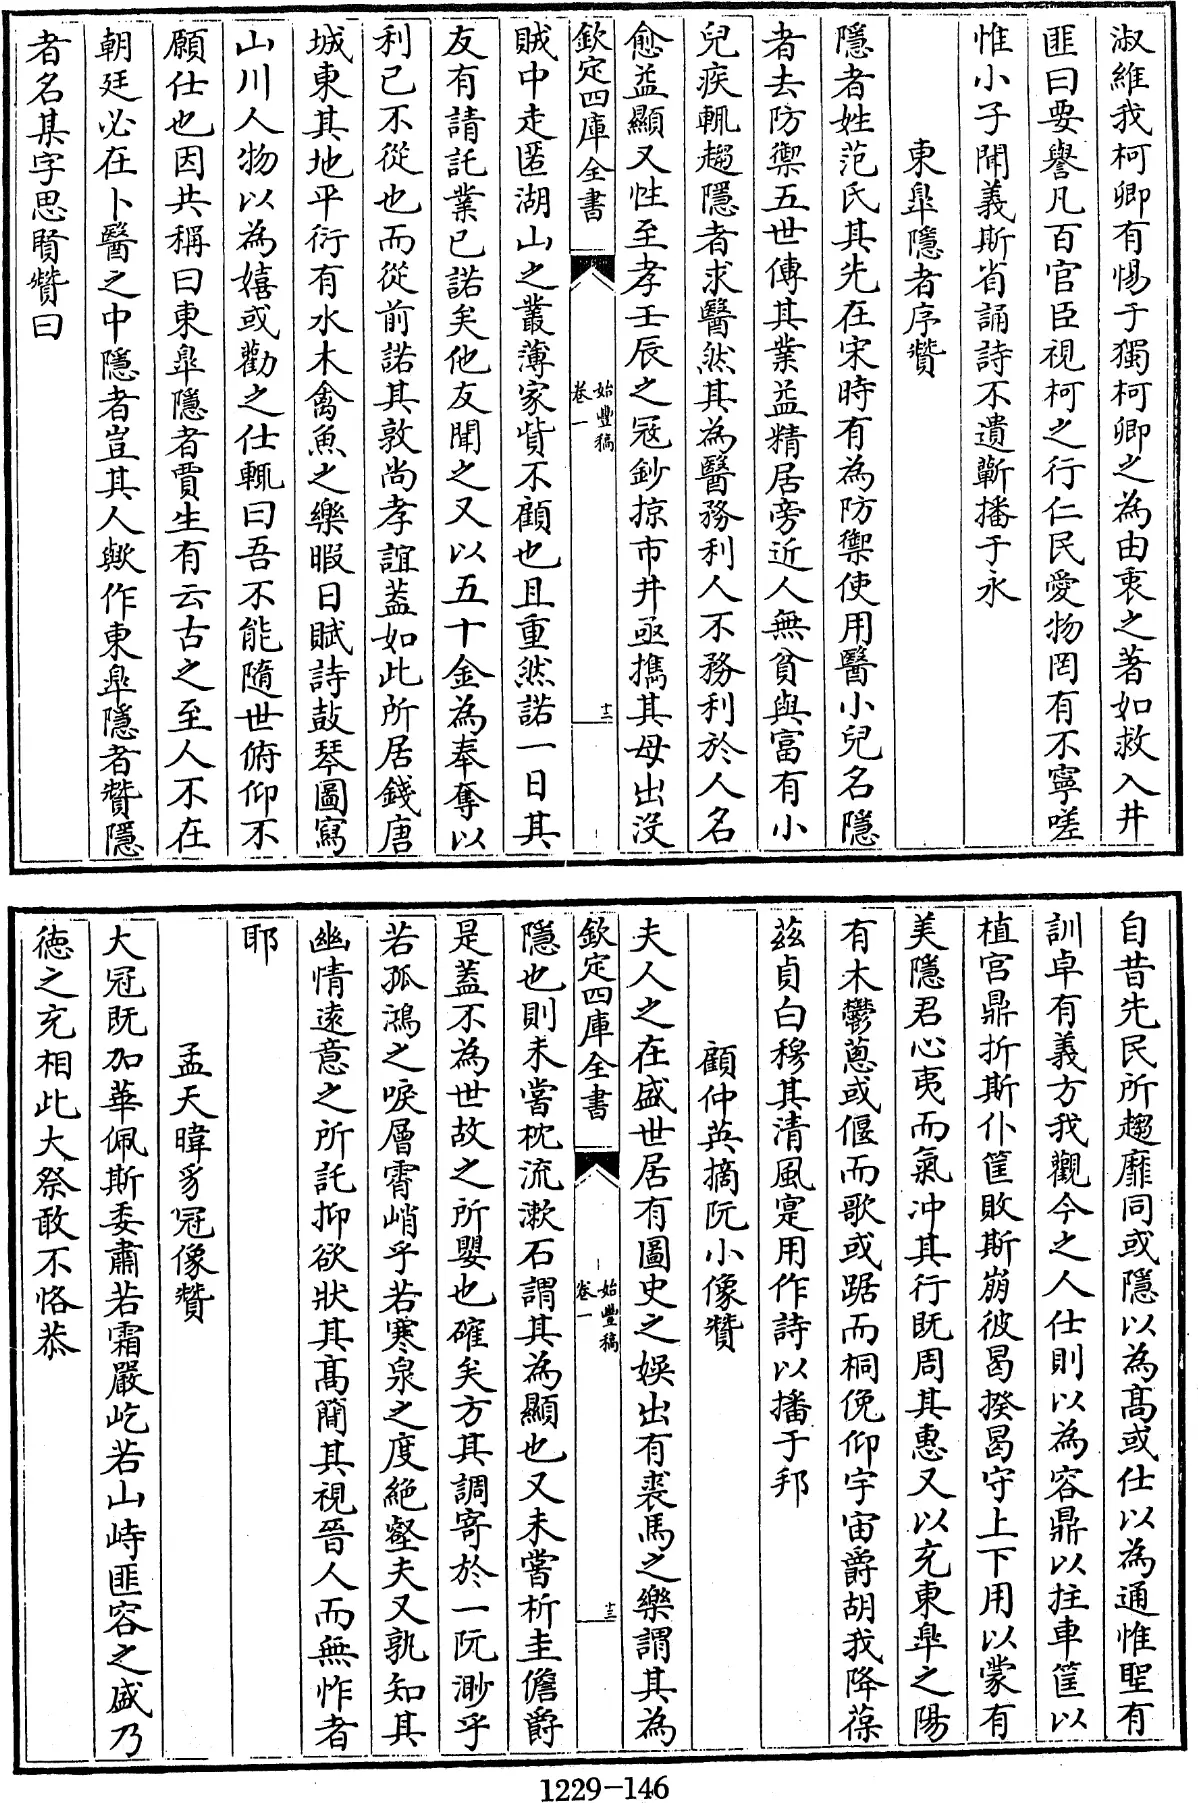 淑維我柯卿有惕于獨柯卿之為由衷之著如救入井
匪曰要譽凡百官臣視柯之行仁民愛物罔有不寧嗟
惟小子聞義斯省誦詩不遺蘄播于永
東臯隱者序贊
隱者姓范氏其先在宋時有為防禦使用醫小兒名隱
者去防禦五世傳其業益精居旁近人無貧與富有小
兒疾輒趨隱者求醫然其為醫務利人不務利於人名
愈益顯又性至孝壬辰之冦鈔掠市井亟攜其母出沒
欽定四庫全書
始豐稿
卷一
十二
賊中走匿湖山之叢薄家貲不顧也且重然諾一日其
友有請託業已諾矣他友聞之又以五十金為奉奪以
利已不從也而從前諾其敦尚孝誼蓋如此所居錢唐
城東其地平衍有水木禽魚之樂暇日賦詩鼓琴圖寫
山川人物以為嬉或勸之仕輒曰吾不能隨世俯仰不
願仕也因共稱曰東臯隱者賈生有云古之至人不在
朝廷必在卜醫之中隱者豈其人歟作東臯隱者贊隱
者名某字思賢贊曰
自昔先民所趨靡同或隱以為髙或仕以為通惟聖有
訓卓有義方我觀今之人仕則以為容鼎以拄車筐以
植宫鼎折斯仆筐敗斯崩彼曷揆曷守上下用以蒙有
美隱君心夷而氣冲其行既周其惠又以充東臯之陽
有木鬱蔥或偃而歌或踞而桐俛仰宇宙爵胡我降葆
兹貞白穆其清風寔用作詩以播于邦
顧仲英摘阮小像贊
夫人之在盛世居有圖史之娱出有裘馬之樂謂其為
欽定四庫全書
始豐稿
卷一
十三
隱也則未嘗枕流漱石謂其為顯也又未嘗析圭儋爵
是蓋不為世故之所嬰也確矣方其調寄於一阮渺乎
若孤鴻之唳層霄峭乎若寒泉之度絶壑夫又孰知其
幽情遠意之所託抑欲狀其髙簡其視晉人而無怍者
耶
孟天暐豸冠像贊
大冠既加華佩斯委肅若霜嚴屹若山峙匪容之盛乃
徳之充相此大祭敢不恪恭
1229-146